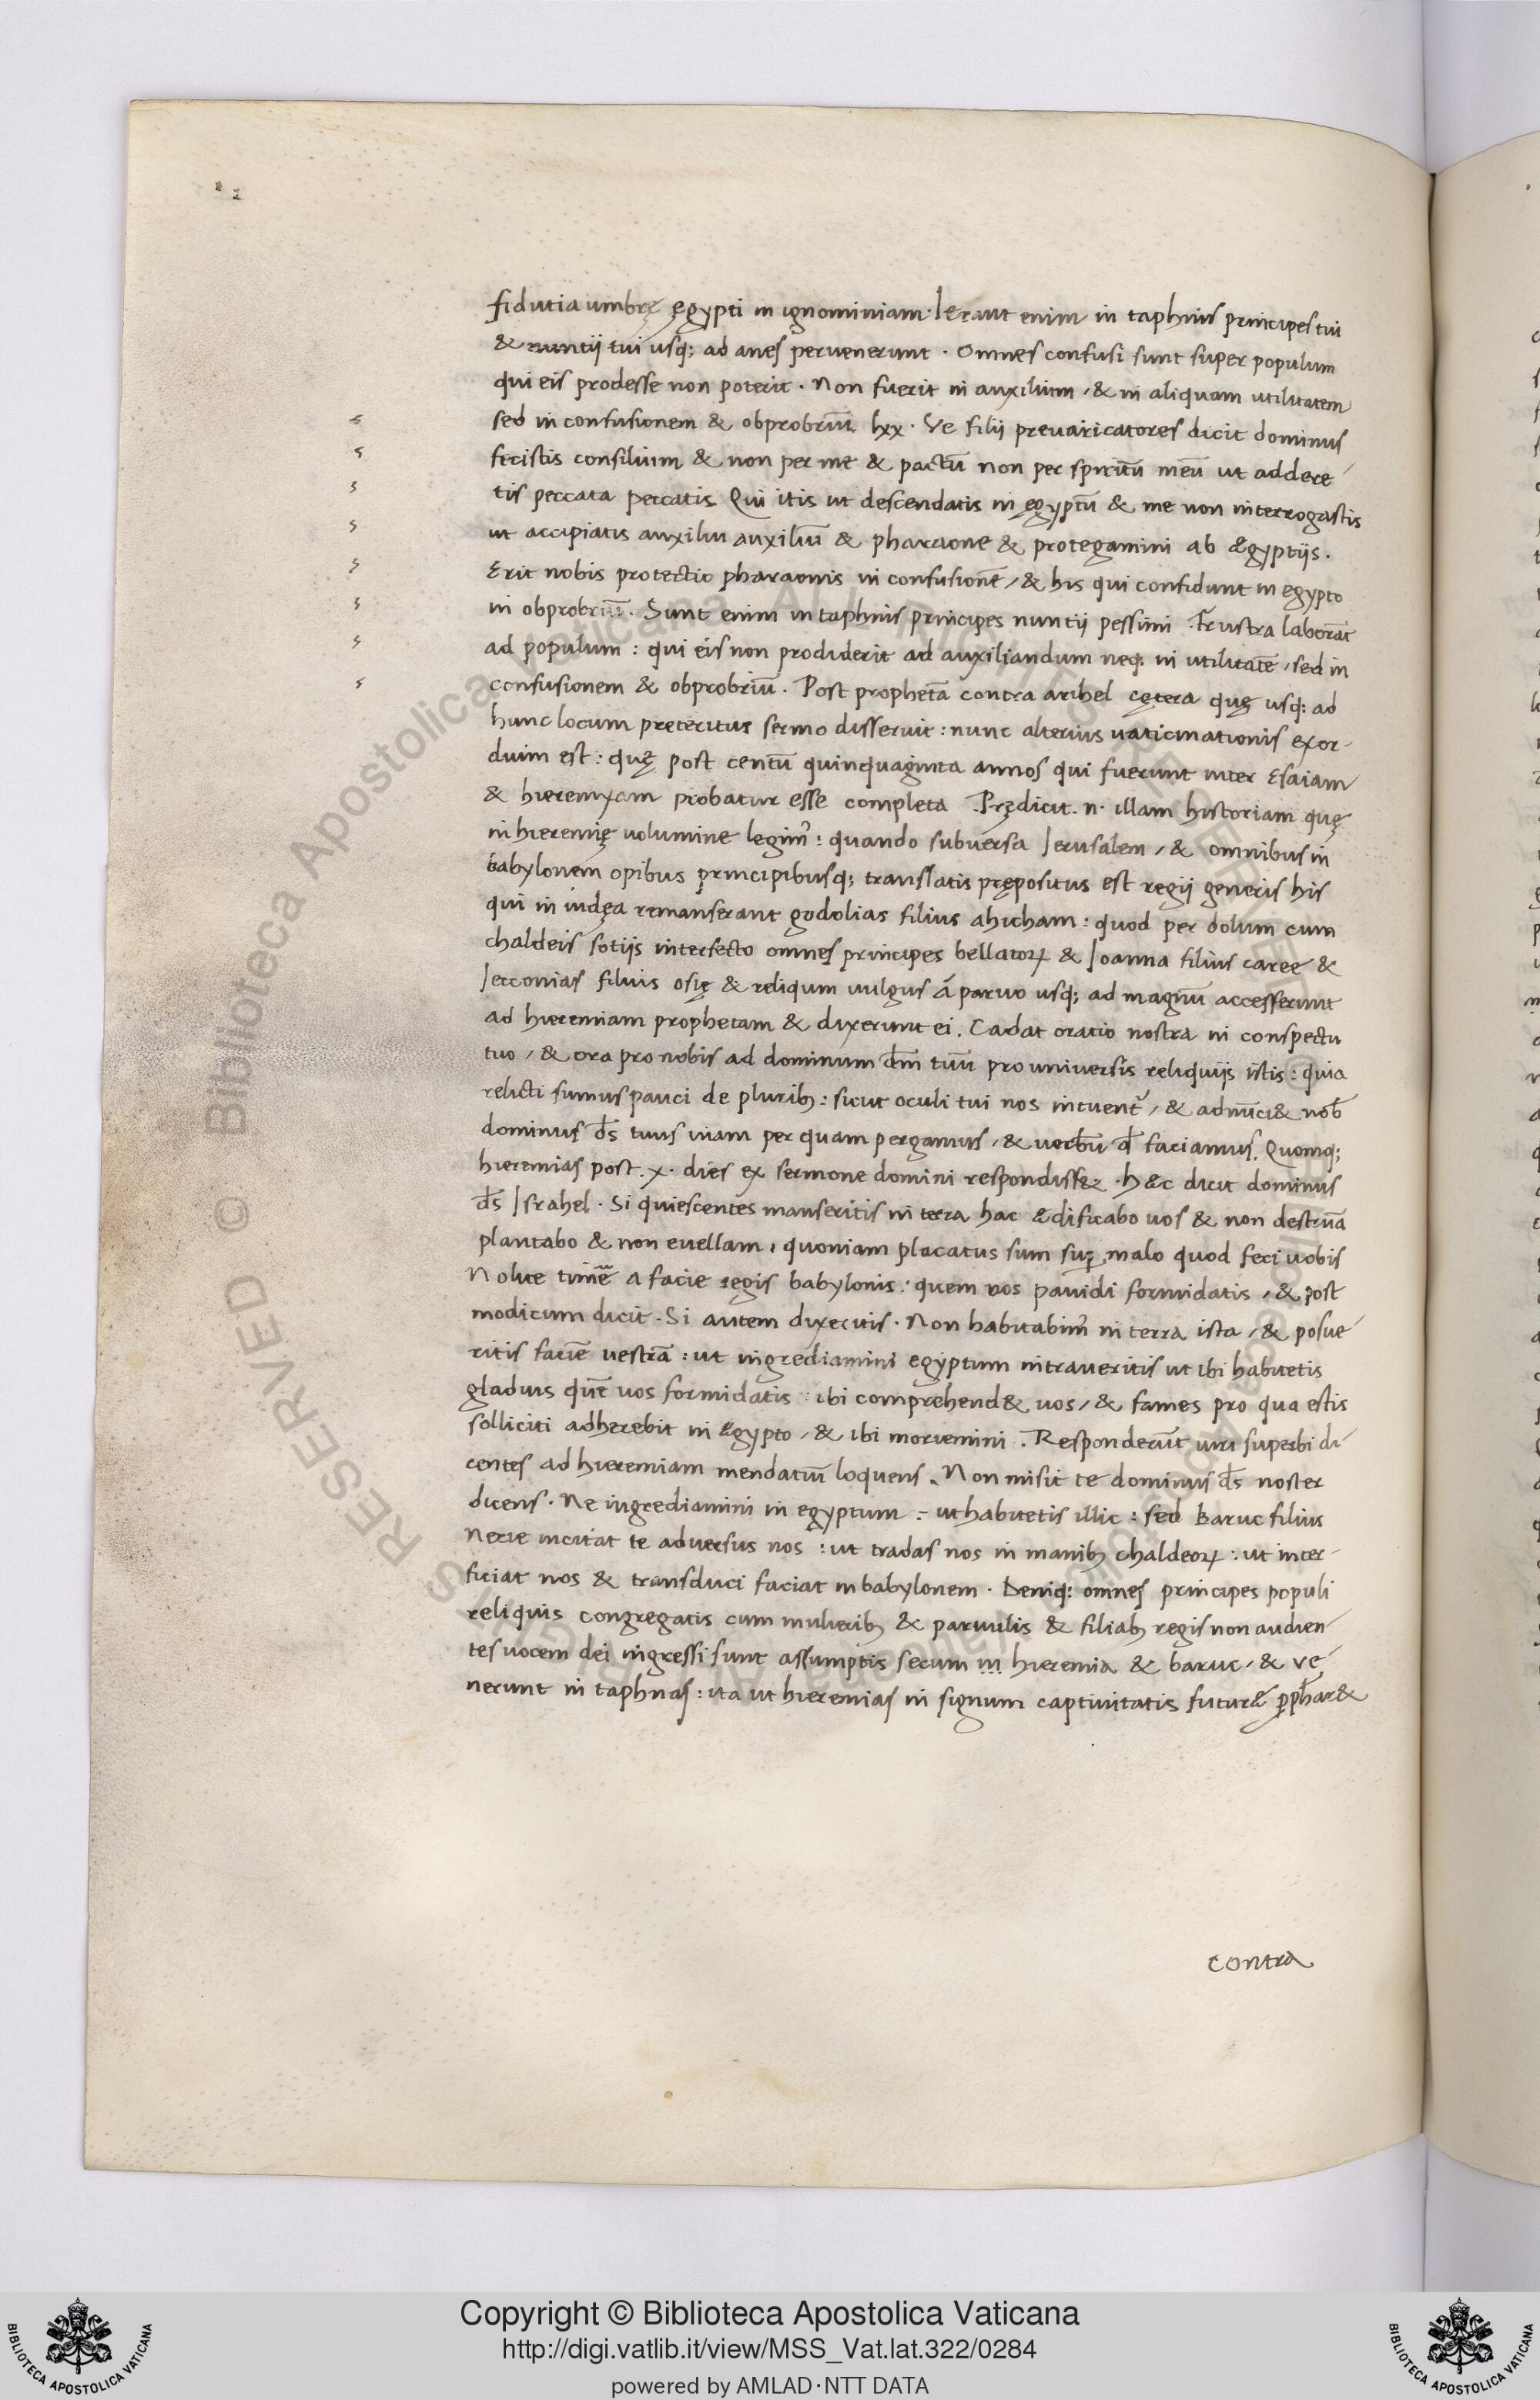 fidutia umbrę ęgypti in ignominiam. Erant enim in taphnis principes tui
& nuntij tui usq; ad anes peruenerunt. Omnes confusi sunt super populum
qui eis prodesse non poterit. Non fuerit in auxilium, & in aliquam utilitatem
sed in confusionem & obprobriũ lxx. Ve filij preuaricatores dicit dominus
fecistis consilium & non per me & pactũ non per spiritũ meũ ut addere
tis peccata peccatis Qui itis ut descendatis in ęgyptũ & me non interrogastis
ut accipiatis auxiliu auxiliũ & pharaone & protegamini ab ægyptijs.
Erit nobis protectio pharaonis in confusionẽ, & his qui confidunt in ęgypto
in obprobriũ. Sunt enim in taphnis principes nuntij pessimi Frustra laborãt
ad populum: qui eis non prodiderit ad auxiliandum neq; in utilitatẽ, sed in
confusionem & obprobriũ. Post prophetã contra arihel cętera quę usq; ad
hunc locum preteritus sermo disseruit: nunc alterius uaticinationis exor-
dium est: quę post centũ quinquaginta annos qui fuerunt inter Esaiam
& hieremyam probatur esse completa Prędicit .n. illam historiam quę
in hieremię uolumine legim᾿: quando subuersa Jerusalem, & omnibus in
babylonem opibus principibusq; translatis prępositus est regij generis his
qui in iudęa remanserant godolias filius ahicham: quod per dolum cum
chaldeis sotijs interfecto omnes principes bellatoꝝ & Joanna filius caree &
Jecconias filius osię & reliqum uulgus á paruo usq; ad magnũ accesserunt
ad hieremiam prophetam & dixerunt ei. Cadat oratio nostra in conspectu
tuo, & ora pro nobis ad dominum dm̃ tuũ pro uniuersis reliquijs istis: quia
relicti sumus pauci de plurib;: sicut oculi tui nos intuent᾿, & adnũci& nob̃
dominus ds̃ tuus uiam per quam pergamus, & uerbũ qd̃ faciamus. Quomq;
hieremias post .x. dies ex sermone domini respondiss&. hæc dicit dominus
ds̃ Israhel. Si quiescentes manseritis in terra hac ædificabo uos & non destruã
plantabo & non euellam, quoniam placatus sum suꝑ malo quod feci uobis
Nolite timẽ a facie regis babylonis: quem uos pauidi formidatis, & post
modicum dicit. Si autem dixeritis. Non habitabim᾿ in terra ista, & posue
ritis faciẽ uestrã: ut ingrediamini egyptum intraueritis ut ibi habitetis
gladius quẽ uos formidatis: ibi comprehend& uos, & fames pro qua estis
solliciti adherebit in ęgypto, & ibi moriemini. Responderũt uiri superbi di
centes ad hieremiam mendatiũ loquens. Non misit te dominus ds̃ noster
dicens. Ne ingrediamini in ęgyptum: ut habitetis illic: sed Baruc filius
Nerie incitat te aduersus nos: ut tradas nos in manib; chaldeoꝝ: ut inter-
ficiat nos & transduci faciat in babylonem. Deniq; omnes principes populi
reliquis congregatis cum mulierib; & paruulis & filiab; regis non audien
tes uocem dei ingressi sunt assumptis secum in hieremia & baruc, & ve
nerunt in taphnas: ita ut hieremias in signum captiuitatis futuræ
contra
RESERVED © Biblioteca Apostolica Vaticana. ALL RIGHTS RESERVED
BIBLIOTECA APOSTOLICA VATICANA
Copyright © Biblioteca Apostolica Vaticana
http://digi.vatlib.it/view/MSS_Vat.lat.322/0284
powered by AMLAD·NTT DATA
BIBLIOTECA APOSTOLICA VATICANA